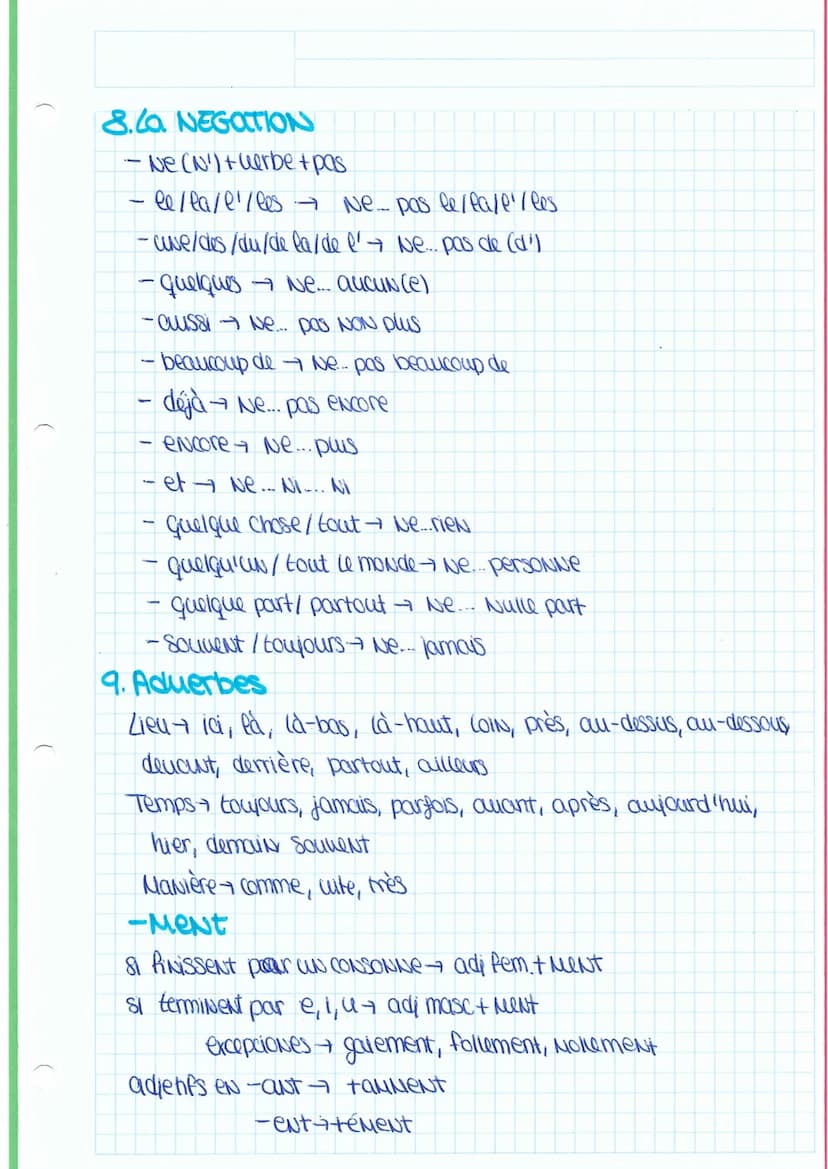 8. La NEGATION
- Ne (N') + verbe + pas
- le/la/l'/les → Ne... pas le/la/l'/les
- une/des/du/de la/de l' → Ne... pas de (d')
- quelques → Ne... aucun(e)
- aussi → Ne... pas NON plus
- beaucoup de → Ne... pas beaucoup de
- déjà → Ne... pas encore
- encore → Ne... plus
- et → Ne... Ni... Ni
- Quelque chose/tout → Ne...rien
- quelqu'un/tout le monde → Ne... personne
- quelque part/partout → Ne... Nulle part
- Souvent/toujours → Ne... jamais
9. Adverbes
Lieu → ici, là, là-bas, là-haut, loin, près, au-dessus, au-dessous,
devant, derrière, partout, ailleurs
Temps → toujours, jamais, parfois, avant, après, aujourd'hui,
hier, demain souvent
Manière → comme, vite, très
-Ment
si finissent pour un consonne → adj fem. + ment
si terminent par e, i, u → adj masc + ment
excepciones → gaiement, follement,
adjetifs en -ant → +amment
-ent → +ément